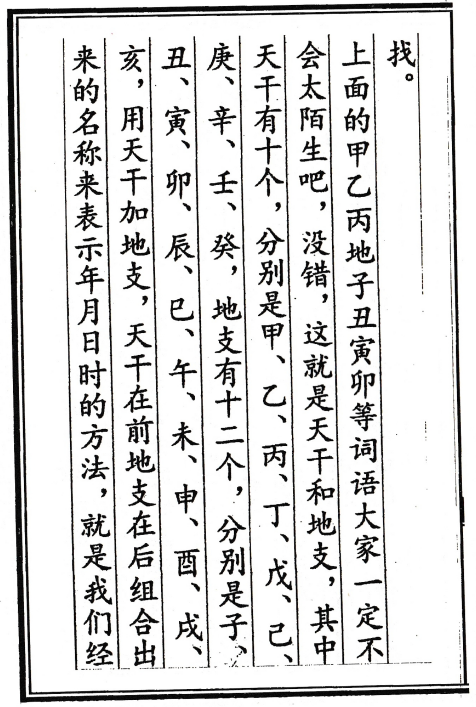 找。
上面的甲乙丙地子丑寅卯等词语大家一定不
会太陌生吧，没错，这就是天干和地支，其中
天干有十个，分别是甲、乙、丙、丁、戊、己、
庚、辛、壬、癸，地支有十二个，分别是子、
丑、寅、卯、辰、巳、午、未、申、酉、戌、
亥，用天干加地支，天干在前地支在后组合出
来的名称来表示年月日时的方法，就是我们经